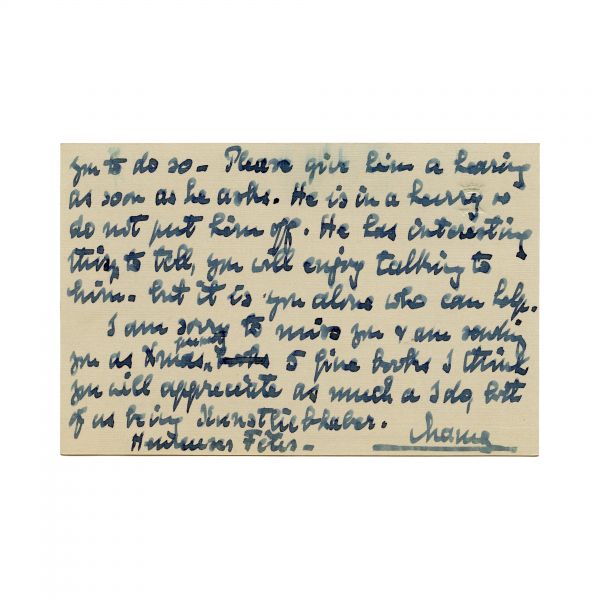 you to do so - Please give him a hearing
as soon as he asks. He is in a hurry so
do not put him off. He has interesting
things to tell, you will enjoy talking to
him - but it is you alone who can help.
I am sorry to miss you & am sending
you as Xmas 5 fine books I think
you will appreciate as much as I do, both
of us being Kunstliebhaber.
Heureuses Fêtes -